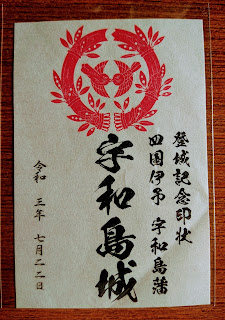 登城記念印状
四国伊予 宇和島藩
宇和島城
令和 三年 七月二二日